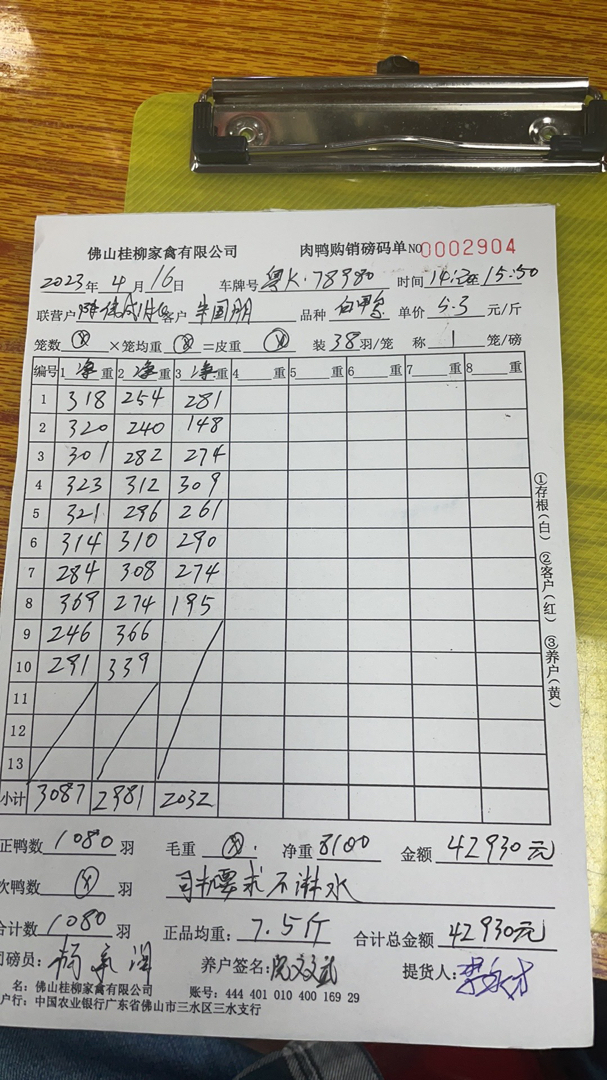 佛山桂柳家禽有限公司 肉鸭购销磅码单 NO 0002904
2023年 4月 16日 车牌号 粤K·78980 时间 15:50
联营户 客户 品种 单价 5.3 元/斤
笼数 ⊗ ×笼均重 ⊗ =皮重 ⊗ 装 38 羽/笼 称 1 笼/磅
编号 1 净 重 2 净 重 3 净 重 4 重 5 重 6 重 7 重 8 重
1 318 254 281
2 320 240 148
3 301 282 274
4 323 312 309
5 321 296 261
6 314 310 290
7 284 308 274
8 369 274 195
9 246 366
10 291 339
11
12
13
小计 3087 2981 2032
①存根(白) ②客户(红) ③养户(黄)
正鸭数 1080 羽 毛重 ⊗ 净重 8100 金额 42930元
次鸭数 ⊗ 羽 司机要求不淋水
合计数 1080 羽 正品均重: 7.5斤 合计总金额 42930元
司磅员: 养户签名: 提货人:
名: 佛山桂柳家禽有限公司 账号: 444 401 010 400 169 29
户行: 中国农业银行广东省佛山市三水区三水支行